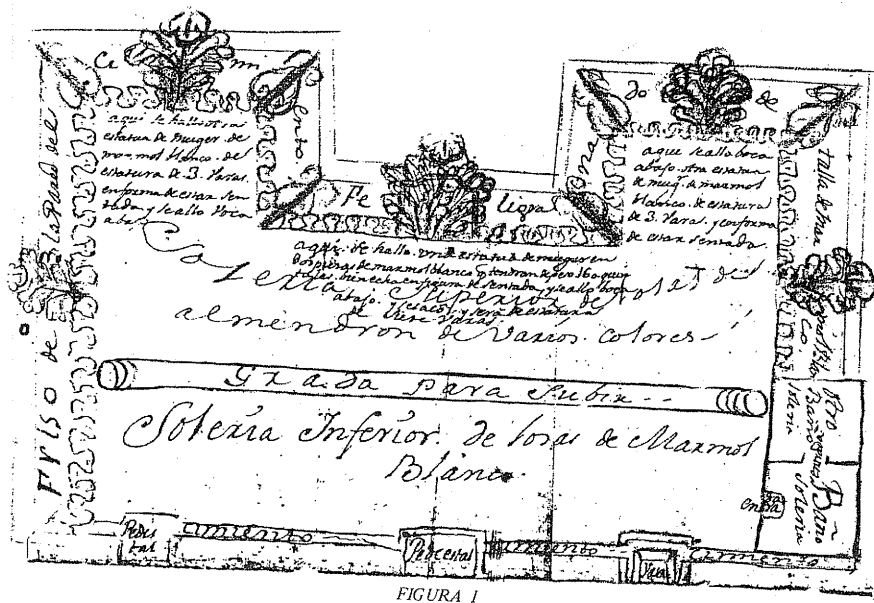 Ci mi ento
Do de
aqui se hallo otra
estatua de muger de
marmol blanco del
estatura de 3. Varas.
enforma de estar sen
tada y se allo boca
abajo
aqui se allo boca
abajo otra estatua
de mug. de marmol
blanco. de estatura
de 3. Vara. y enforma
de estar sentada.
Friso de la Pared del
talla de
aqui. se hallo. una estatua de muguer en
dos piezas de marmol blanco q tendran de peso 16 a quin
tales. bien echa en figura de sentada, y se allo boca
abajo. y sera de estatura
de tres varas
Soleria Superior de losas de
almendron de Varios. colores
Grada para Subir
Soleria Inferior. de losas de Marmol
Blanco.
otro
Baño
Soleria
Baño
Soleria
entrada
Pedes
tal
cimiento
Pedestal
cimiento
cimiento
FIGURA I